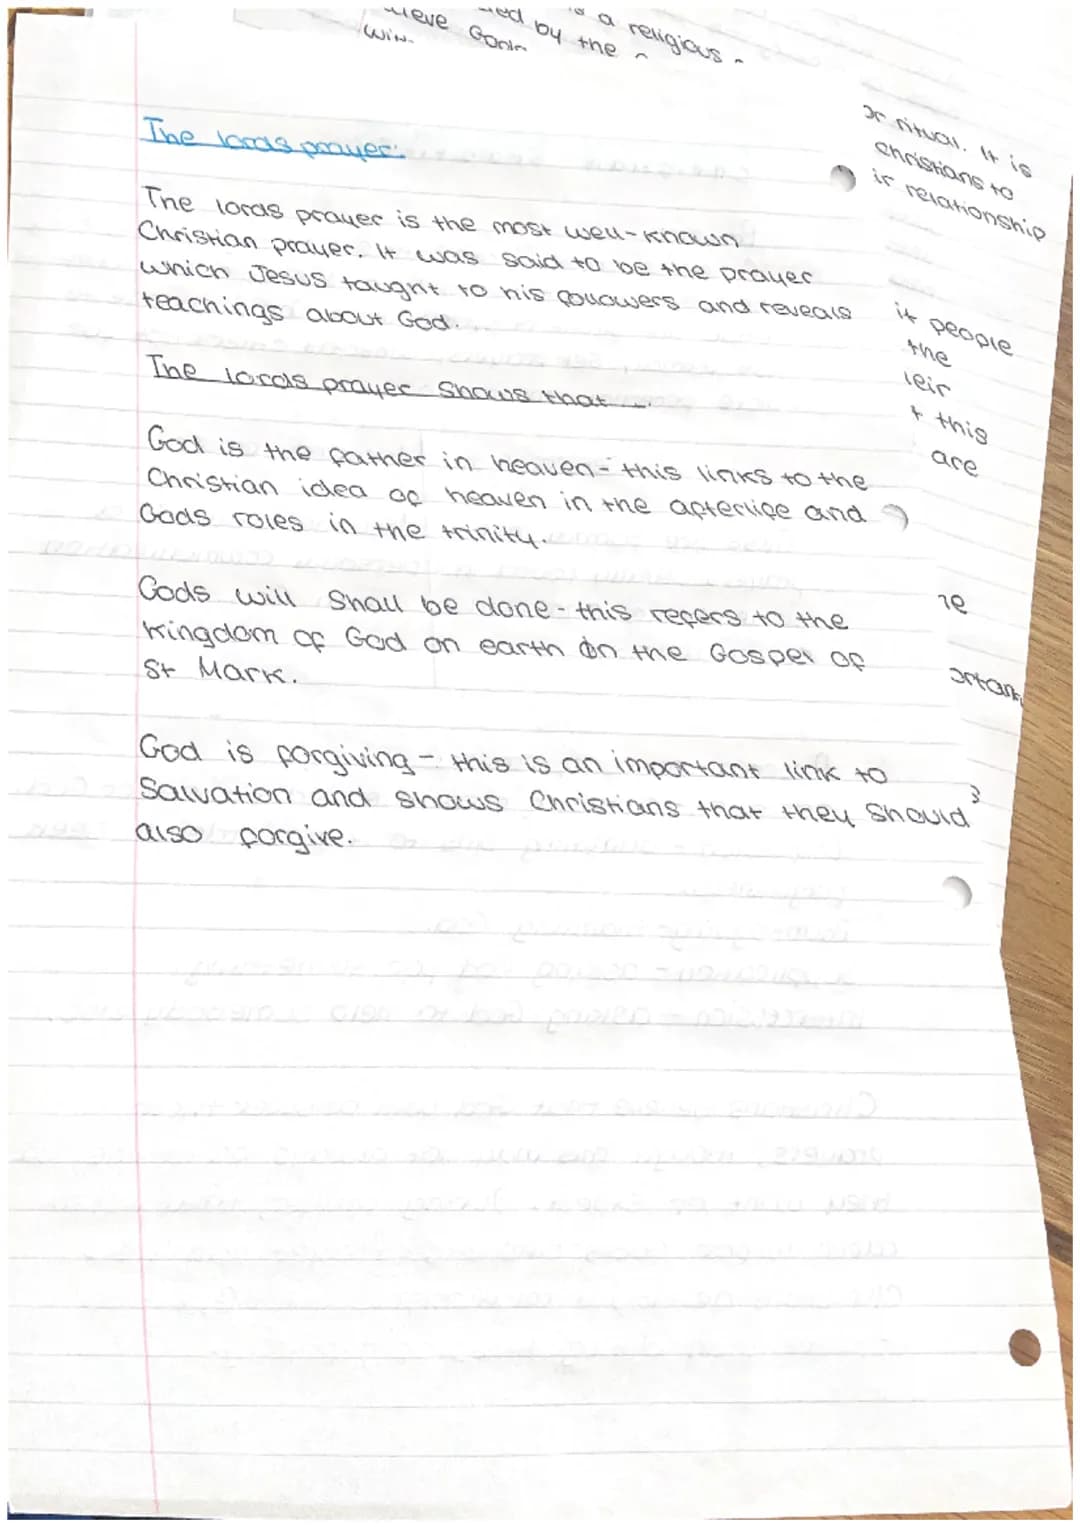 a religious
by the
The lords prayer:
The lords prayer is the most well-known
Christian prayer. It was said to be the prayer
which Jesus taught to his followers and reveals
teachings about God.
The lords prayer shows that ...
God is the father in heaven - this links to the
Christian idea of heaven in the afterlife and
Gods roles in the trinity.
Gods will shall be done - this refers to the
kingdom of God on earth in the Gospel of
St Mark.
God is forgiving - this is an important link to
Salvation and shows Christians that they should
also forgive.
or ritual. It is
Christians to
ir relationship
it people
the
eir
t this
are